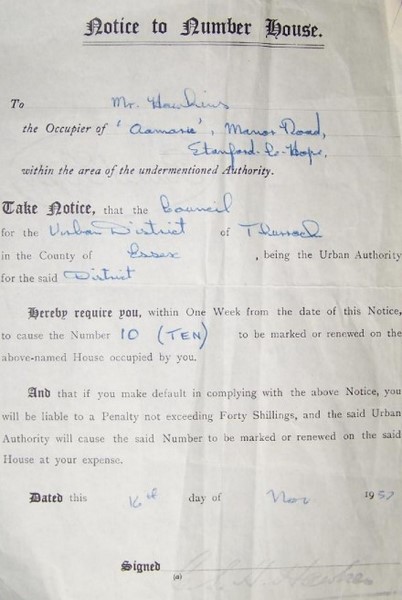 Notice to Number House.
To Mr. Hawkins
the Occupier of 'Aamarie', Manor Road,
Stanford-le-Hope,
within the area of the undermentioned Authority.
Take Notice, that the Council
for the Urban District of Thurrock
in the County of Essex, being the Urban Authority
for the said District
Hereby require you, within One Week from the date of this Notice,
to cause the Number 10 (TEN) to be marked or renewed on the
above-named House occupied by you.
And that if you make default in complying with the above Notice, you
will be liable to a Penalty not exceeding Forty Shillings, and the said Urban
Authority will cause the said Number to be marked or renewed on the said
House at your expense.
Dated this 16th day of Nov 1937
Signed
(a)